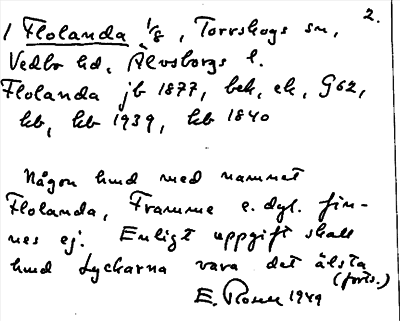 2.
1 Flolanda 1/8, Torrskogs sn,
Vedbo hd, Älvsborgs l.
Flolanda jb 1877, bek, ek, G62,
kb, kb 1939, hb 1840
Någon hmd med namnet
Flolanda, Framme e. dyl. fin-
nes ej. Enligt uppgift skall
hmd Lyckorna vara det älsta
(forts.)
E. Rosell 1949